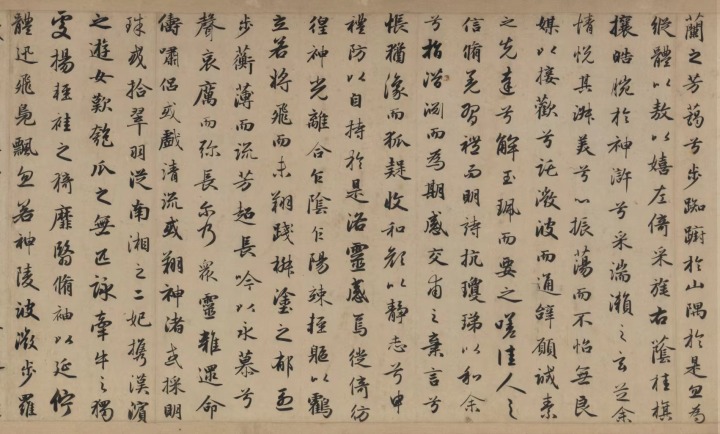 蘭之芳藹兮步踟躕於山隅於是忽焉
縱體以敖以嬉左倚采旄右蔭桂旗
攘皓腕於神滸兮采湍瀨之玄芝余
情悅其淑美兮心振蕩而不怡無良
媒以接歡兮託微波而通辭願誠素
之先達兮解玉珮而要之嗟佳人之
信脩羌習禮而明詩抗瓊珶以和余
兮指潛淵而為期感交甫之棄言兮
悵猶豫而狐疑收和顏以靜志兮申
禮防以自持於是洛靈感焉徙倚彷
徨神光離合乍陰乍陽竦輕軀以鶴
立若將飛而未翔踐椒塗之郁烈
步蘅薄而流芳超長吟以永慕兮
聲哀厲而彌長爾乃眾靈雜遝命
儔嘯侶或戲清流或翔神渚或採明
珠或拾翠羽從南湘之二妃攜漢濱
之遊女歎匏瓜之無匹詠牽牛之獨
處揚輕袿之猗靡翳脩袖以延佇
體迅飛鳧飄忽若神陵波微步羅